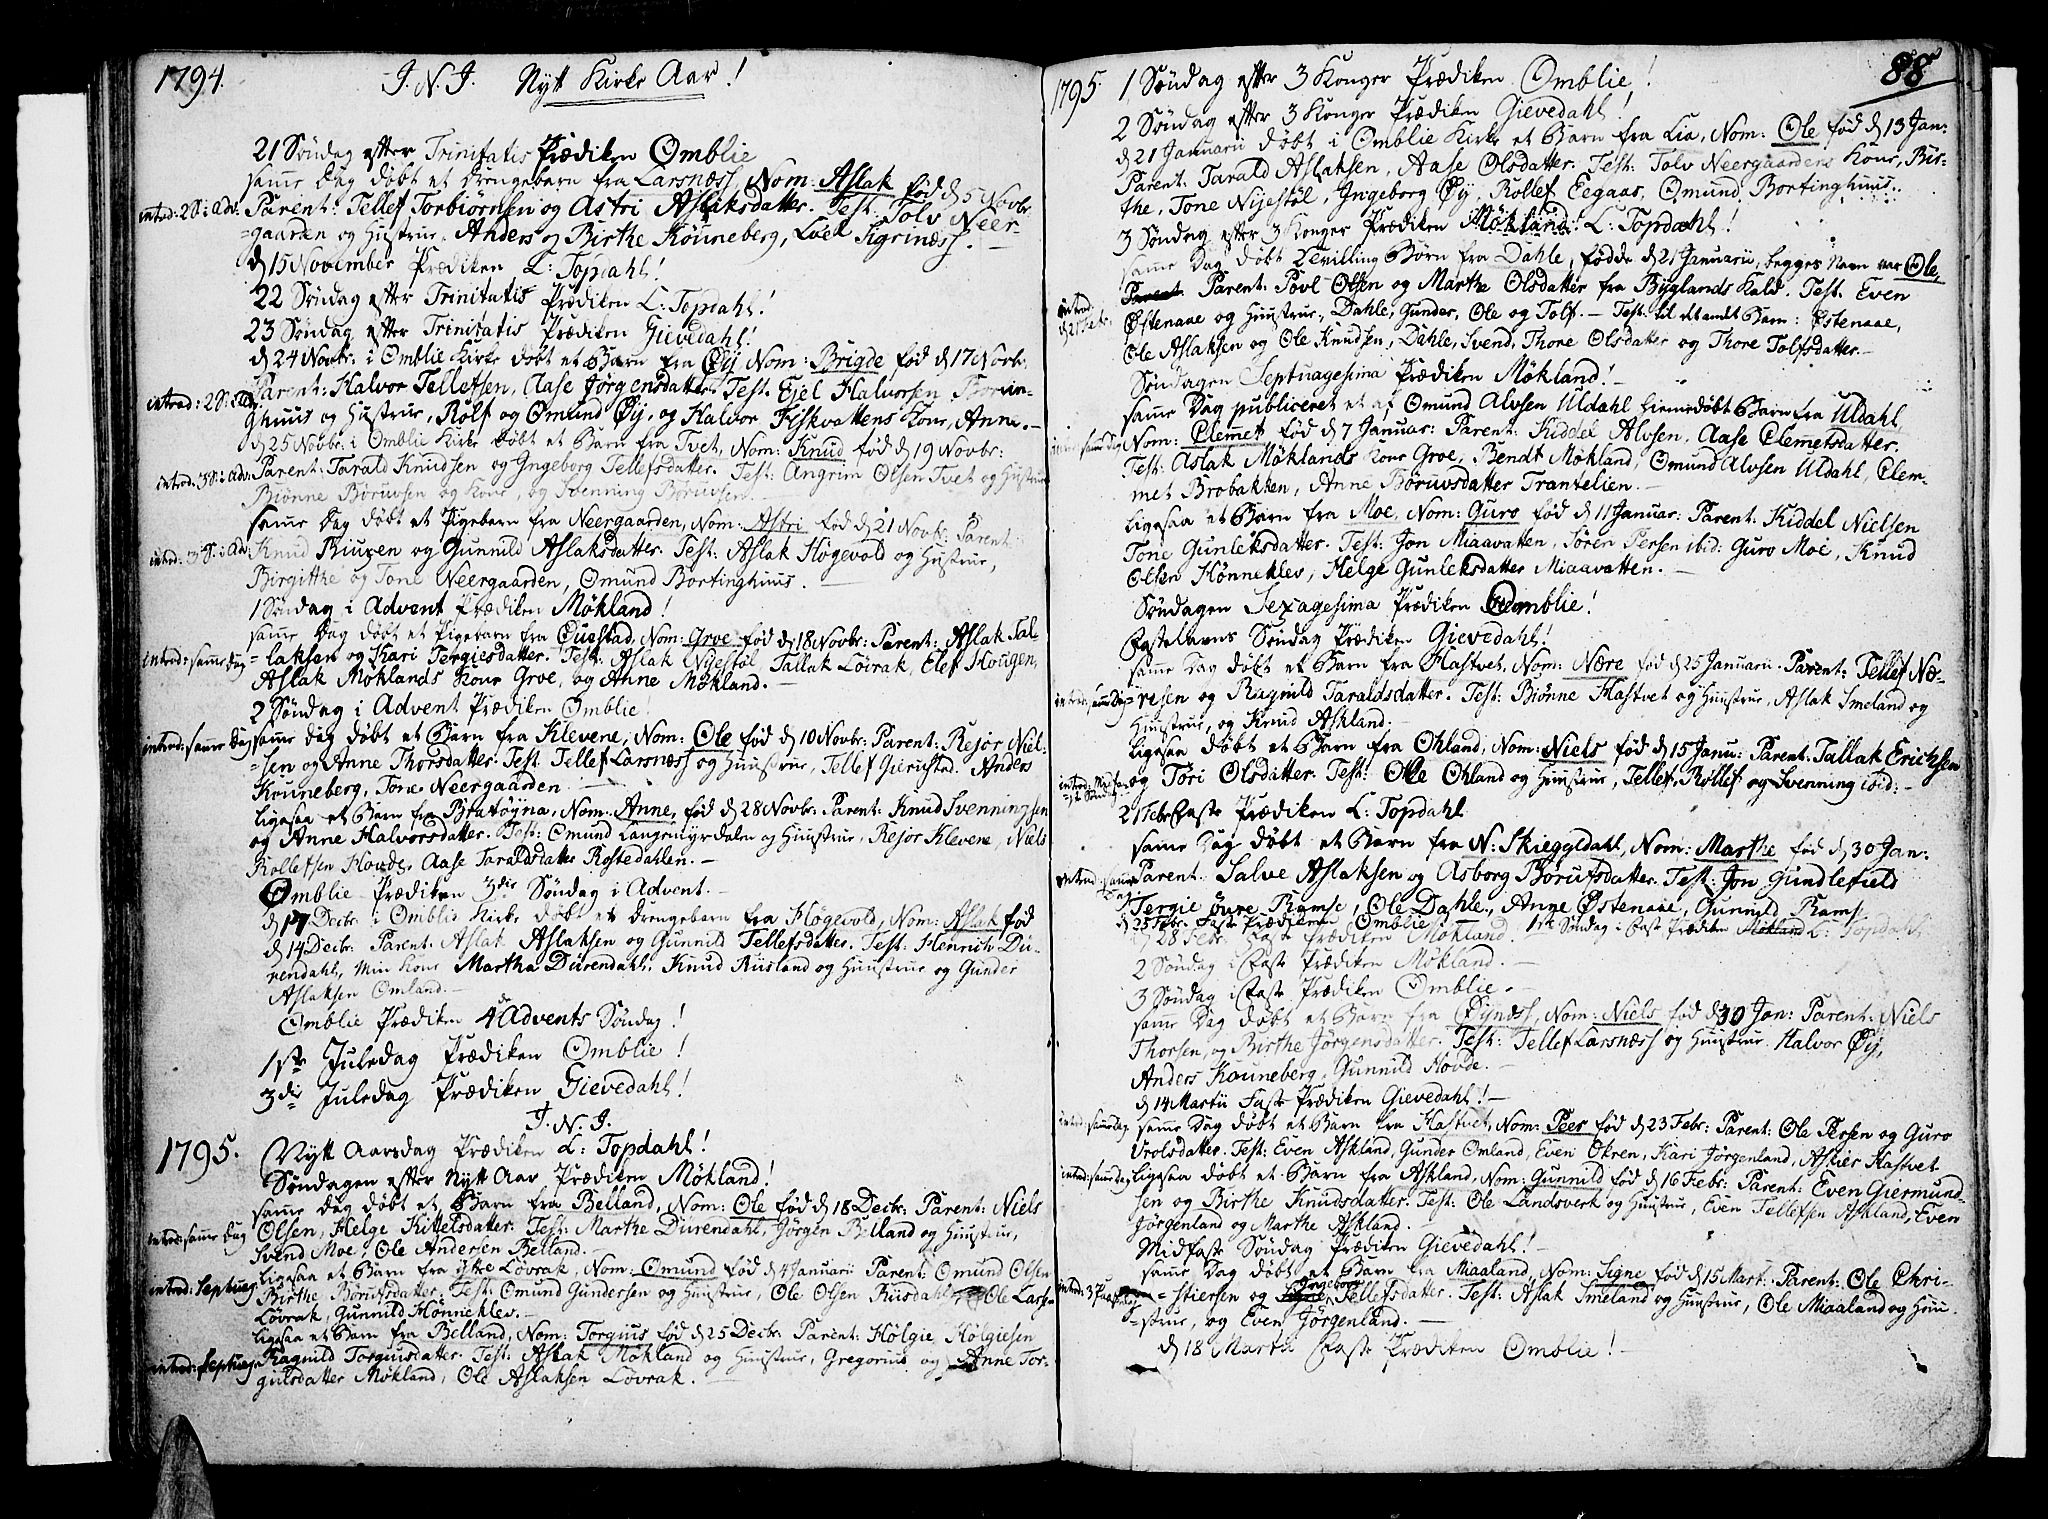 1794. J. N. J. Nytt Kirke Aar!
21 Søndag efter Trinitatis Prædiken Omblie
samme Dag døbt et Drengebarn fra Larsnæss, Nom: Aslak fød d 5 Novbr
intrad: 2 S: i Adv: Parent: Tellef Torbiornsen og Astri Aslaksdatter. Test: Tolv Neer-
=gaarden og Hustrue, Anders og Birthe Kouneberg, Loek Sigrinæss.
d 15 November Prædiken L: Topdahl!
22 Søndag efter Trinitatis Prædiken L: Topdahl!
23 Søndag efter Trinitatis Prædiken Gievedahl!
d 24 Novbr: i Omblie Kirke døbt et Barn fra Øij Nom: Brigde fød d 17 Novbr.
intrad: 2 S: i Adv: Parent: Halvor Tellefsen, Aase Jørgensdatter. Test. Ejel Halvorsen Bortin-
ghuus og Hustrue, Rolf og Omund Øij, og Halvor Fiskvattens Kone, Anne.-
d 25 Novbr: i Omblie Kirke døbt et Barn fra Tvet, Nom: Knud fød d 19 Novbr:
intrad: 3 S: i Adv: Parent: Tarald Knudsen og Ingeborg Tellefsdatter. Test: Angrim Olsen Tvet og Hustrue
Biønne Børuvsen og Kone, og Svenning Børuvsen.
samme Dag døbt et Pigebarn fra Neergaarden, Nom: Astri fød d 21 Novbr: Parent:
intrad: 3 S: i Adv: Knud Biuxen og Gunnild Aslaksdatter. Test: Aslak Høgevold og Hustrue,
Birgitthe og Tone Neergaarden, Omund Bortinghuus.
1 Søndag i Advent Prædiken Møkland!
samme Dag døbt et Pigebarn fra Ouestad, Nom: Groe fød d 18 Novbr: Parent: Aslak Tal-
intrad: samme Dag =laksen og Kari Tergiesdatter. Test: Aslak Nyestøl, Tallak Løvrak, Elef Hougen,
Aslak Møklands Kone Groe, og Anne Møkland.-
2 Søndag i Advent Prædiken Omblie!
intrad: samme Dag samme Dag døbt et Barn fra Klevene, Nom: Ole fød d 10 Novbr: Parent: Rejor Niel-
=sen og Anne Thorsdatter. Test. Tellef Larsnæss og Huustrue, Tellef Gierustad. Anders
Kouneberg, Tone Neergaarden.
ligesaa et Barn fra Bratøyna, Nom: Anne, fød d 28 Novbr: Parent: Knud Svenningsen
og Anne Halvorsdatter. Test: Omund Langemyrdalen og Huustrue, Rejor Klevene, Niels
Rollefsen Hovde, Aase Taraldsdatter Rostedahlen.-
Omblie Prædiken 3die Søndag i Advent.-
d 17 Decbr: i Omblie Kirke døbt et Drengebarn fra Høgevold, Nom: Aslak fød
d 14 Decbr: Parent: Aslak Aslaksen og Gunnild Tellefsdatter. Test: Henrich Du-
rendahl, Min Kone Martha Durendahl, Knud Riisland og Huustrue og Gunder
Aslaksen Omland.-
Omblie Prædiken 4de Advents Søndag!
1ste Juledag Prædiken Omblie!
3die Juledag Prædiken Gievedahl!
J. N. J.
1795. Nytt Aarsdag Prædiken L: Topdahl!
Søndagen efter Nytt Aar Prædiken Møkland!
samme Dag døbt et Barn fra Belland, Nom: Ole fød d 18 Decbr: Parent: Niels
intrad: samme Dag Olsen, Helge Kittelsdatter. Test: Marthe Durendahl, Jørgen Belland og Huustrue,
Svend Moe, Ole Andersen Belland.
intrad: Septuag: ligesaa et Barn fra ytre Løvrak, Nom: Omund fød d 4 Januari: Parent: Omund Olsen
Birthe Børuvsdatter. Test: Omund Gundersen og Huustrue, Ole Olsen Riisdahl, Ole Lars-
Løvrak, Gunnild Hønneklev.-
ligesaa et Barn fra Belland, Nom: Torgius fød d 25 Decbr: Parent: Hølgie Hølgiesen
intrad: Septuag: Ragnild Torgiusdatter. Test: Aslak Møkland og Huustrue, Gregorius og Anne Tor-
giusdatter Møkland, Ole Aslaksen Løvrak.
88
1795. 1 Søndag efter 3 Konger Prædiken Omblie!
2 Søndag efter 3 Konger Prædiken Gievedahl!
d 21 Januarii døbt i Omblie Kirke et Barn fra Lia, Nom: Ole fød d 13 Jan:
Parent: Tarald Aslaksen, Aase Olsdatter. Test: Tolv Neergaardens Kone, Bir-
the, Tone Nijestøl, Ingeborg Øij, Rollef Eegaas, Omund Bortinghuus.
3 Søndag efter 3 Konger Prædiken Møkland! L: Topdahl!
samme Dag døbt Tvilling Børn fra Dahle, fødde d 21 Januarii, begges Navn var Ole,
intrad: d 21 Febr: Parent: Povl Olsen og Marthe Olsdatter fra Byglands Kald. Test: Even
Østenaae og Huustrue, Dahle, Gunder, Ole og Tolf.- Test: til det andet Barn: Østenaae,
Ole Aslaksen og Ole Knudsen, Dahle, Svend, Thore Olsdatter og Thore Tolfsdatter.-
Søndagen Septuagesima Prædiken Møkland!-
samme Dag publiceret et af Omund Alvsen Uldahl hiemedøbt Barn fra Uldahl,
intrad: samme Dag Nom: Clemmet fød d 7 Januar: Parent: Kiddel Alvsen. Aase Clemetsdatter.
Test: Aslak Møklands Kone Groe, Bendt Møkland, Omund Alvsen Uldahl, Clem-
met Brobakken, Anne Børuvsdatter Trantelien.-
ligesaa et Barn fra Moe, Nom: Guro fød d 11 Januar: Parent: Kiddel Nielsen
Tone Gunleksdatter. Test: Jon Miaavatten, Søren Persen ibid: Guro Moe, Knud
Olsen Hønneklev, Helge Gunleksdatter Miaavatten.-
Søndagen Sexagesima Prædiken Omblie!
Fastelavns Søndag Prædiken Gievedahl!
samme Dag døbt et Barn fra Hastvet, Nom: Nære fød d 25 Januarii: Parent: Tellef Næ-
intrad: samme Dag =resen og Ragnild Taraldsdatter. Test: Biønne Hastvet og Huustrue, Aslak Smeland og
Huustrue, og Knud Askland.-
ligesaa døbt et Barn fra Ohland, Nom: Niels fød d 15 Janu: Parent: Tallak Erichsen
intrad: Midfaste Søndag og Tøri Olsdatter. Test: Ole Ohland og Huustrue, Tellef, Rollef og Svenning ibid:-
21 Febr Faste Prædiken L: Topdahl
samme Dag døbt et Barn fra N: Skieggldahl, Nom: Marthe fød d 30 Jan:
intrad: samme Dag Parent: Salve Aslaksen og Asborg Børufsdatter. Test: Jon Gundlefield
Tergie øvre Ramse, Ole Dahle, Anne Østenaae, Gunnild Ramse
d 25 Febr: Faste Prædiken Omblie 1ste Søndag i Faste Prædiken Møkland L: Topdahl
d 28 Febr: Faste Prædiken Møkland!
2 Søndag i Faste Prædiken Møkland.-
3 Søndag i Faste Prædiken Omblie.-
samme Dag døbt et Barn fra Øijnæss, Nom: Niels fød d 30 Jan: Parent: Niels
Thorsen, og Birthe Jørgensdatter. Test: Tellef Larsnæss og Huustrue. Halvor Øij,
Anders Kouneberg, Gunnild Hovde.-
d 14 Martii Faste Prædiken Gievedahl!-
intrad: samme Dag. samme Dag døbt et Barn fra Hastvet, Nom: Peer fød d 23 Febr: Parent: Ole Persen og Guro
Vrolsdatter. Test: Even Askland, Gunder Omland, Even Okren, Kari Jørgenland, Askier Hastvet
intrad: samme Dag ligesaa døbt et Barn fra Askland, Nom: Gunnild fød d 16 Febr: Parent: Even Giermund-
sen og Birthe Knudsdatter. Test: Ole Landsverk og Huustrue, Even Tellefsen Askland, Even
Jørgenland og Marthe Askland.-
Midfaste Søndag Prædiken Gievedahl!-
samme Dag døbt et Barn fra Miaaland, Nom: Signe fød d 15 Mart: Parent: Ole Chri-
=stiersen og Ingeborg Tellefsdatter. Test: Aslak Smeland og Huustrue, Ole Miaaland og Huu-
=strue, og Even Jørgenland.-
d 18 Martii Faste Prædiken Omblie!-